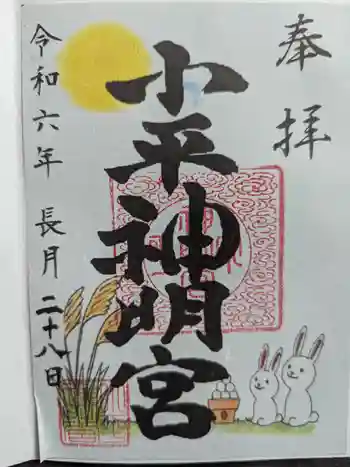 奉拝
小平神明宮
令和六年 長月 二十八日